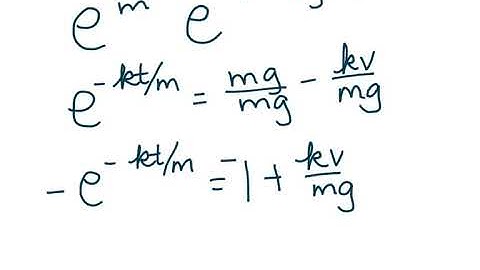 e^m e
e^{-kt/m} = mg/mg - kv/mg
-e^{-kt/m} = -1 + kv/mg